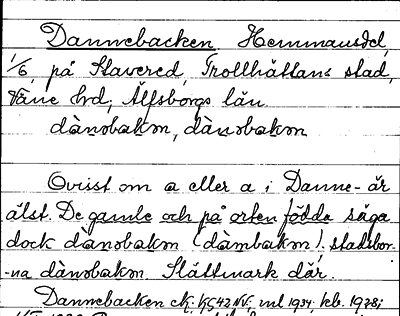 Dannebacken, Hemmansdel,
1/6, på Stavered, Trollhättans stad,
Väne hrd, Älfsborgs län.
dànəbakən, dànəbakən
Ovisst om a eller a i Danne- är
älst. De gamle och på orten födda säga
dock dànəbakən (dàmbakən), stadsbor-
-na dànəbakən. Slättmark där.
Dannebacken ck. KG42 NV, vul 1934, kb. 1978;